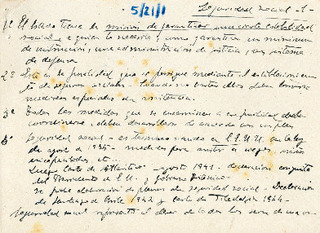 5/21/1
Seguridad social - 1 -
1º El Estado tiene la misión de garantizar una cierta estabilidad
social, a quien la necesita, como garantiza un mínimum
de instrucción, una administración de justicia, un sistema
de defensa.
2º Esta es la finalidad que se persigue mediante el establecimiento
de seguros sociales. Cuando no bastan ellos deben tomarse
medidas especiales de asistencia.
3º Todas las medidas que se encaminen a su finalidad deben
coordinarse y deben desarrollarse de acuerdo con un plan
Seguridad social - es término usado en E.E.U.U. en la ley
de agosto de 1935 - medidas para asistir a viejos, niños
incapacitados etc.
Luego Carta del Atlántico - agosto 1941 - declaración conjunta
del Presidente de E.U. y gobierno británico -
se pide elaboración de planes de seguridad social - Declaración
de Santiago de Chile 1942 y carta de Filadelfia 1944 -
Seguridad social representa el deseo de todos los seres de